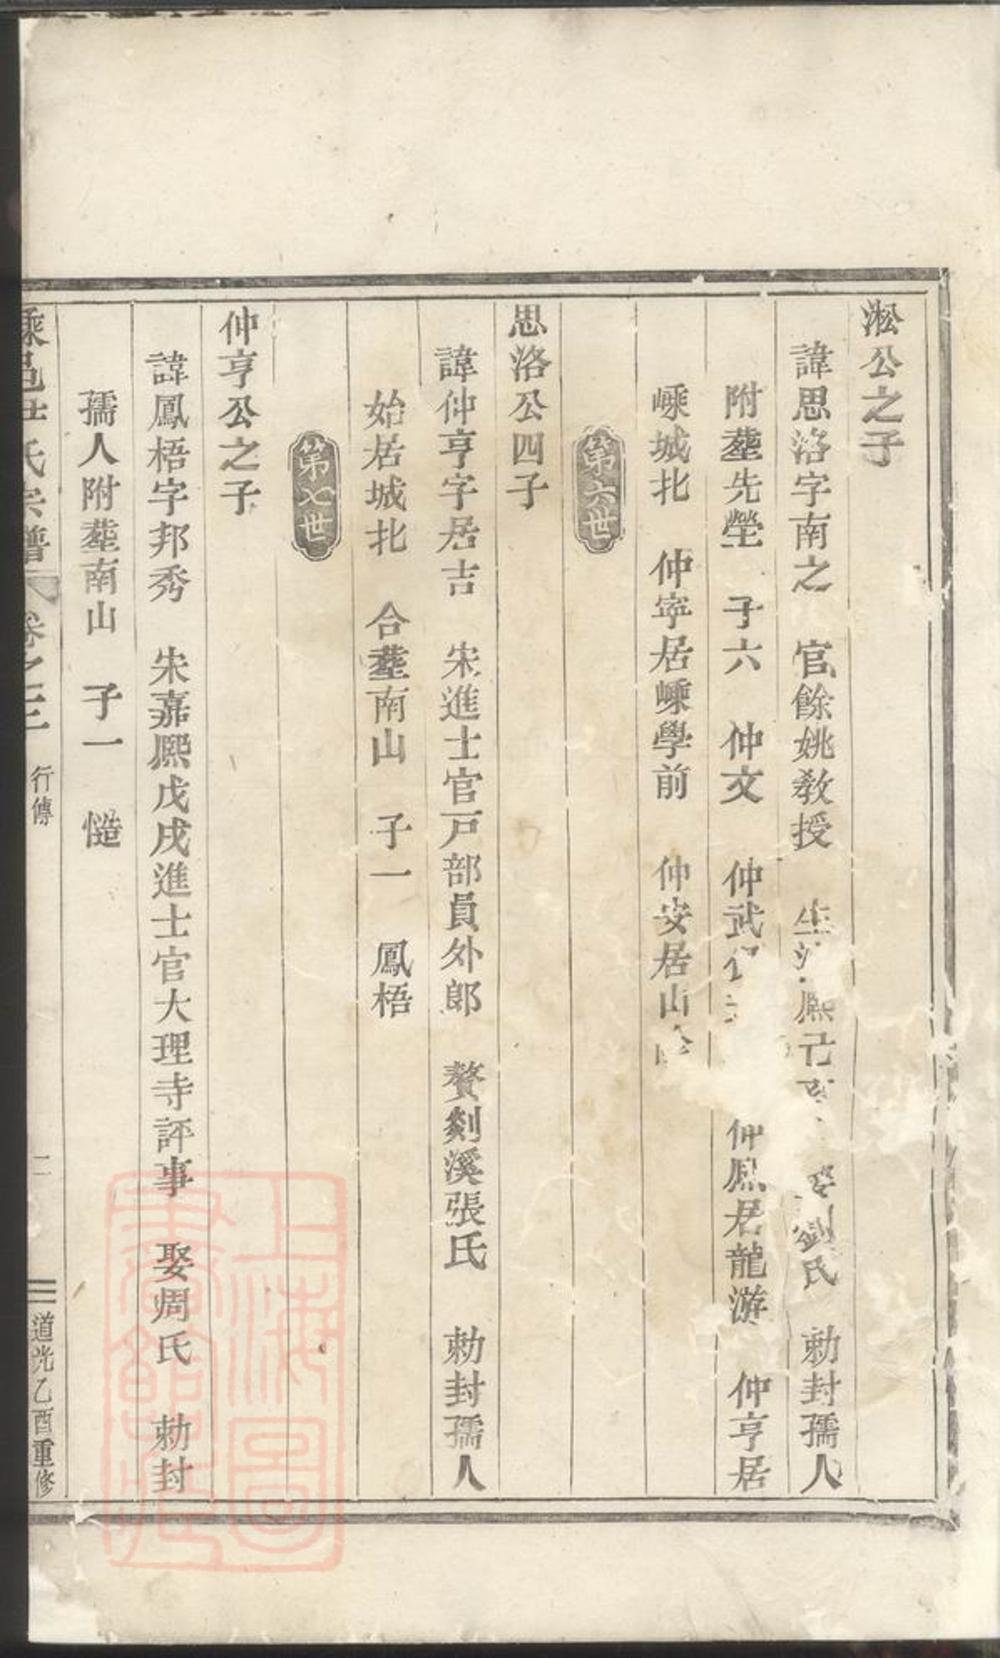 淞公之子
諱思洛字南之 官餘姚教授 生 熙 劉氏 勅封孺人
附塟先塋 子六 仲文 仲武 仲鳳居龍游 仲亨居
嵊城北 仲寧居嵊學前 仲安居山
第六世
思洛公四子
諱仲亨字居吉 宋進士官戸部員外郎 贅剡溪張氏 勅封孺人
始居城北 合塟南山 子一 鳳梧
第七世
仲亨公之子
諱鳳梧字邦秀 宋嘉熙戊戌進士官大理寺評事 娶周氏 勅封
孺人附塟南山 子一 慥
氏宗譜 卷之三 行傳 二 道光乙酉重修
上海圖書館藏